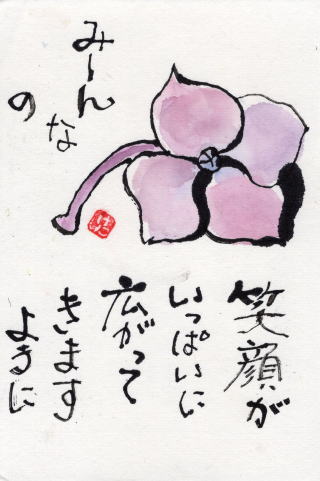 みーんな
の
笑顔が
いっぱいに
広がって
きます
ように